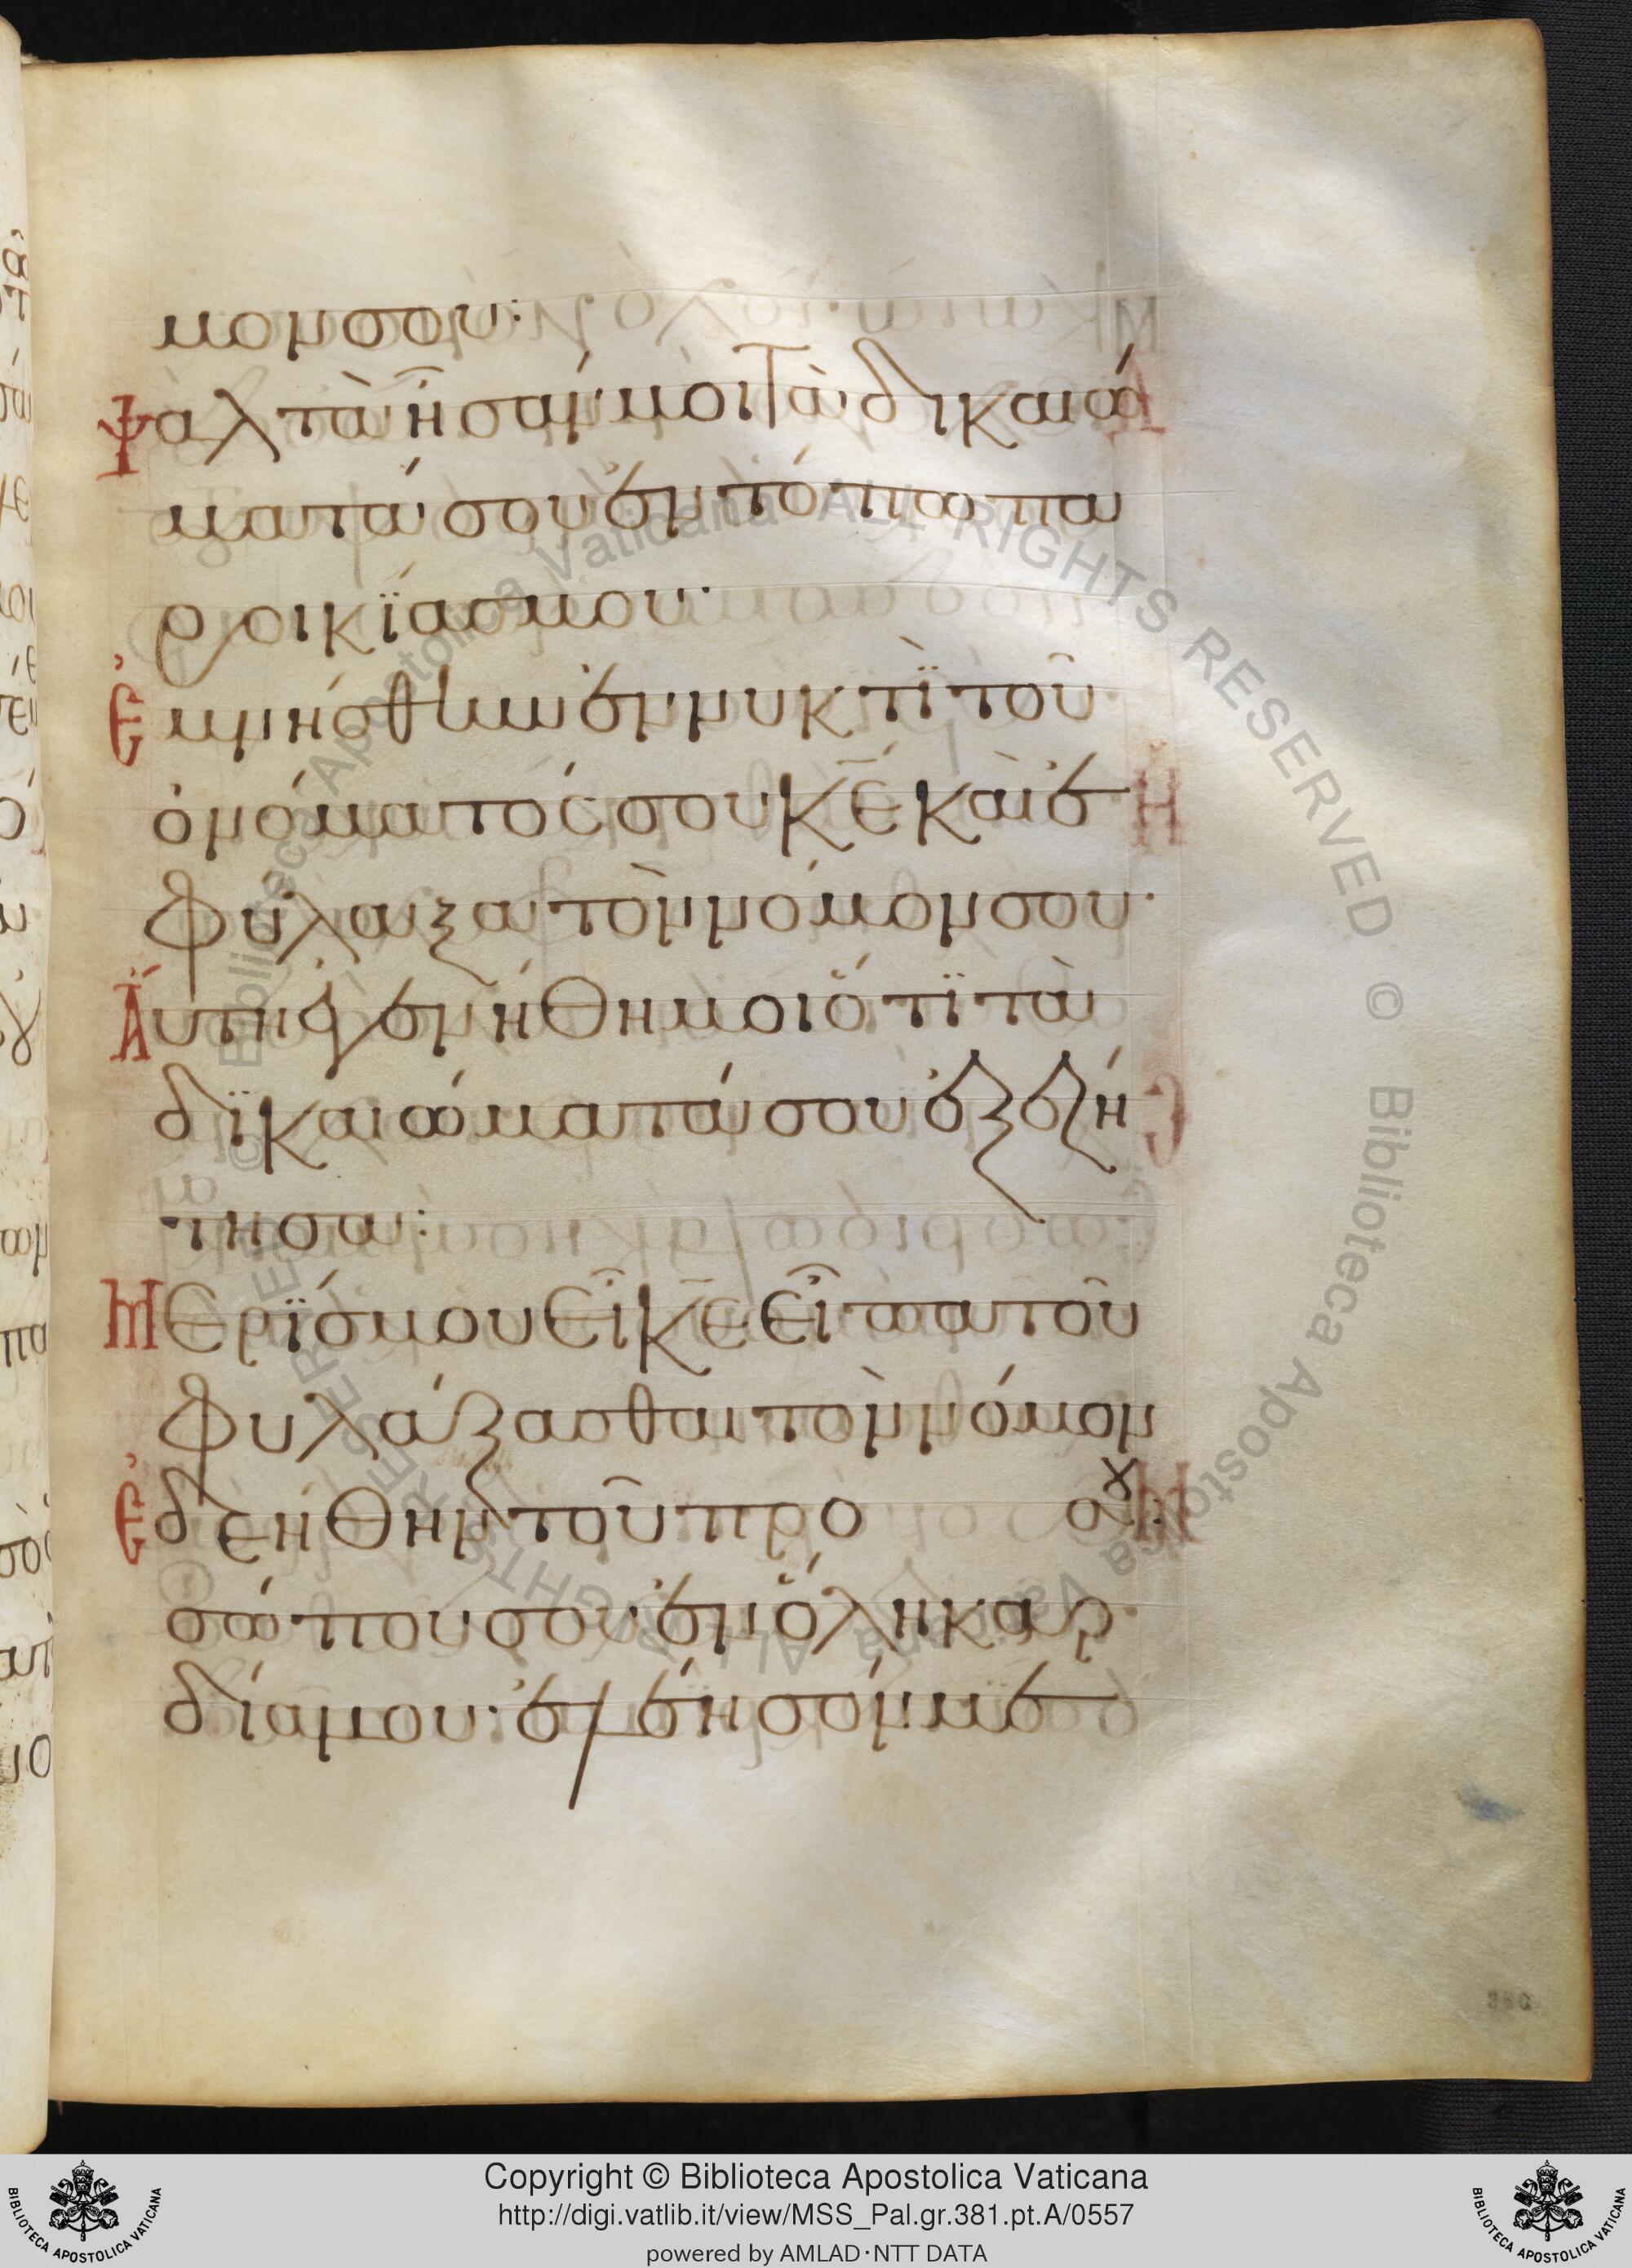 μον σου:
Ψαλτὰ ἦσάν μοι τὰ δικαιώ
ματά σου ἐν τόπω πα
ροικΐας μου·
Ἐμνήσθην ἐν νυκτῒ τοῦ
ὀνόματός σου κ̅ε̅ καὶ ἐ
φύλαξα τὸν νόμον σου·
Ἅυτη ἐγενήθη μοι ὅτϊ τὰ
δϊκαιώματά σου ἐξεζή
τησα:
Μερΐς μου εἶ κ̅ε̅ εἶπα τοῦ
φυλάξασθαι τὸν νόμον
Ἐδεήθην τοῦ προ σου:
σώπου σου ἐν ὅλη καρ
δία μου· ἐλέησόν με
Copyright © Biblioteca Apostolica Vaticana
http://digi.vatlib.it/view/MSS_Pal.gr.381.pt.A/0557
powered by AMLAD·NTT DATA
BIBLIOTECA APOSTOLICA VATICANA
BIBLIOTECA APOSTOLICA VATICANA
© Biblioteca Apostolica Vaticana ALL RIGHTS RESERVED
© Biblioteca Apostolica Vaticana ALL RIGHTS RESERVED